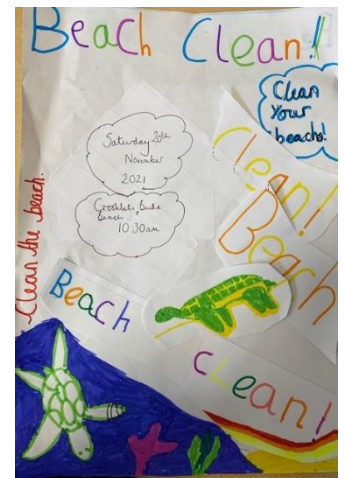 Beach Clean!
Clean
Your
beachs!
Saturday 20th
November
2021
Crooklets, Bude
beach
10:30am
Clean!
Beach
Clean the beach.
Beach
Clean!